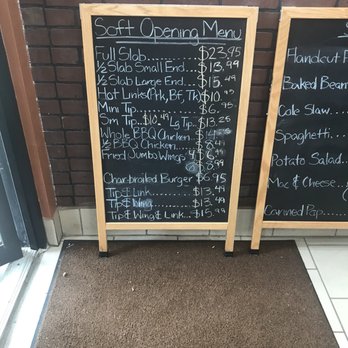 Soft Opening Menu
Full Slab.......$23.95
½ Slab Small End...$13.99
½ Slab Large End...15.49
Hot Links (Prk, Bf, Trk) $10.95
Mini Tip............$6.95
Sm Tip...$10.49 Lg Tip...$13.25
Whole BBQ Chicken
½ BBQ Chicken
Fried Jumbo Wings
Charbroiled Burger $6.95
Tip & Link............$13.49
Tip & Wing...........$13.49
Tip & Wing & Link...$15.99
Handcut
Baked Bean
Cole Slaw
Spaghetti
Potato Salad
Mac & Cheese
Canned Pop